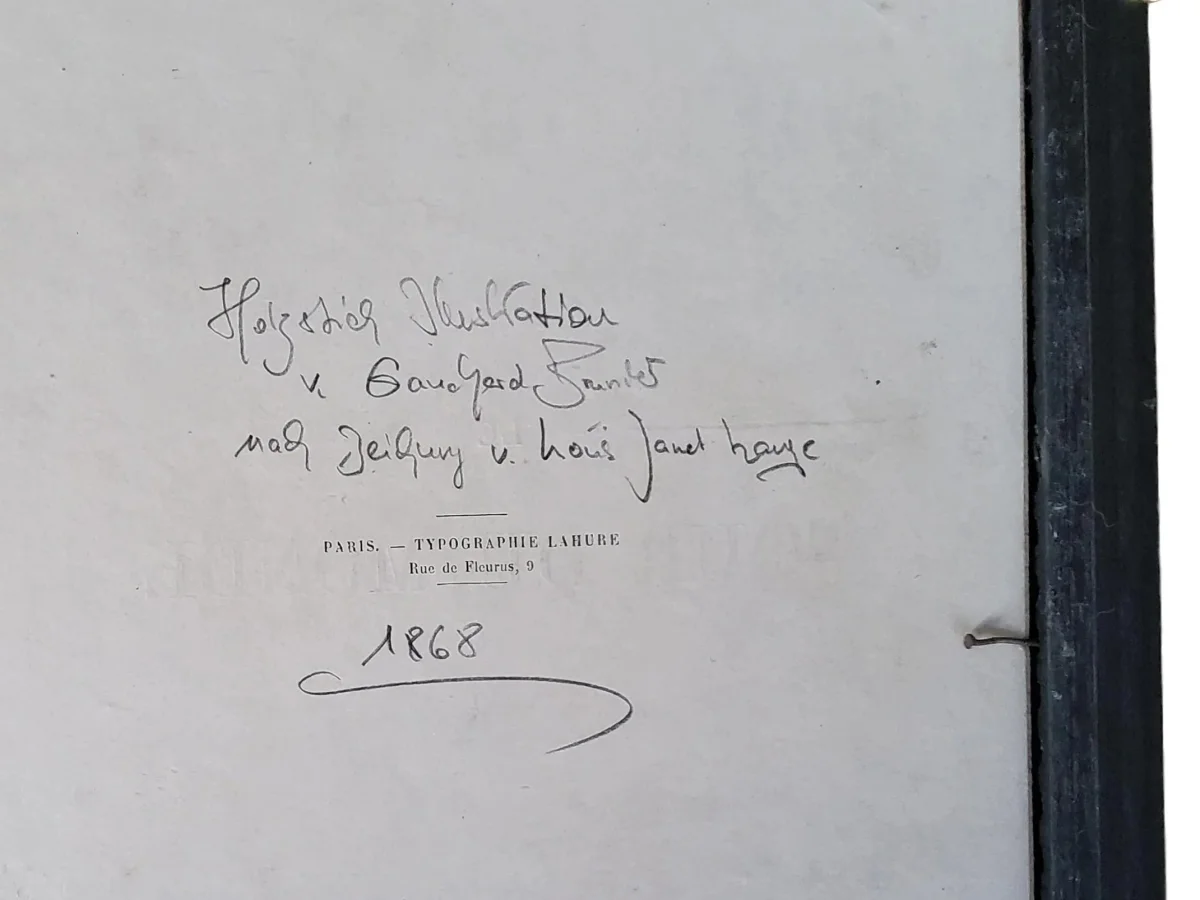 Holzstich Illustration
v. Gauchard-Brunier
nach Zeichung v. Louis Janet Lange
PARIS. — TYPOGRAPHIE LAHURE
Rue de Fleurus, 9
1868